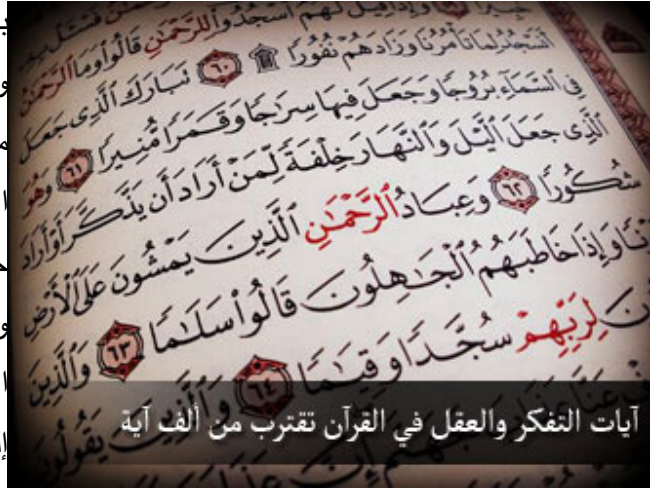 وَإِذَا قِيلَ لَهُمُ ٱسْجُدُواْ لِلرَّحْمَٰنِ قَالُواْ وَمَا ٱلرَّحْمَٰنُ
أَنَسْجُدُ لِمَا تَأْمُرُنَا وَزَادَهُمْ نُفُورًا ۩ ٦٠ تَبَارَكَ ٱلَّذِى جَعَلَ
فِى ٱلسَّمَآءِ بُرُوجًا وَجَعَلَ فِيهَا سِرَٰجًا وَقَمَرًا مُّنِيرًا ٦١ وَهُوَ
ٱلَّذِى جَعَلَ ٱلَّيْلَ وَٱلنَّهَارَ خِلْفَةً لِّمَنْ أَرَادَ أَن يَذَّكَّرَ أَوْ أَرَادَ
شُكُورًا ٦٢ وَعِبَادُ ٱلرَّحْمَٰنِ ٱلَّذِينَ يَمْشُونَ عَلَى ٱلْأَرْضِ
وَإِذَا خَاطَبَهُمُ ٱلْجَٰهِلُونَ قَالُواْ سَلَٰمًا ٦٣ وَٱلَّذِينَ
لِرَبِّهِمْ سُجَّدًا وَقِيَٰمًا ٦٤ وَٱلَّذِينَ يَقُولُونَ
آيات التفكر والعقل في القرآن تقترب من ألف آية